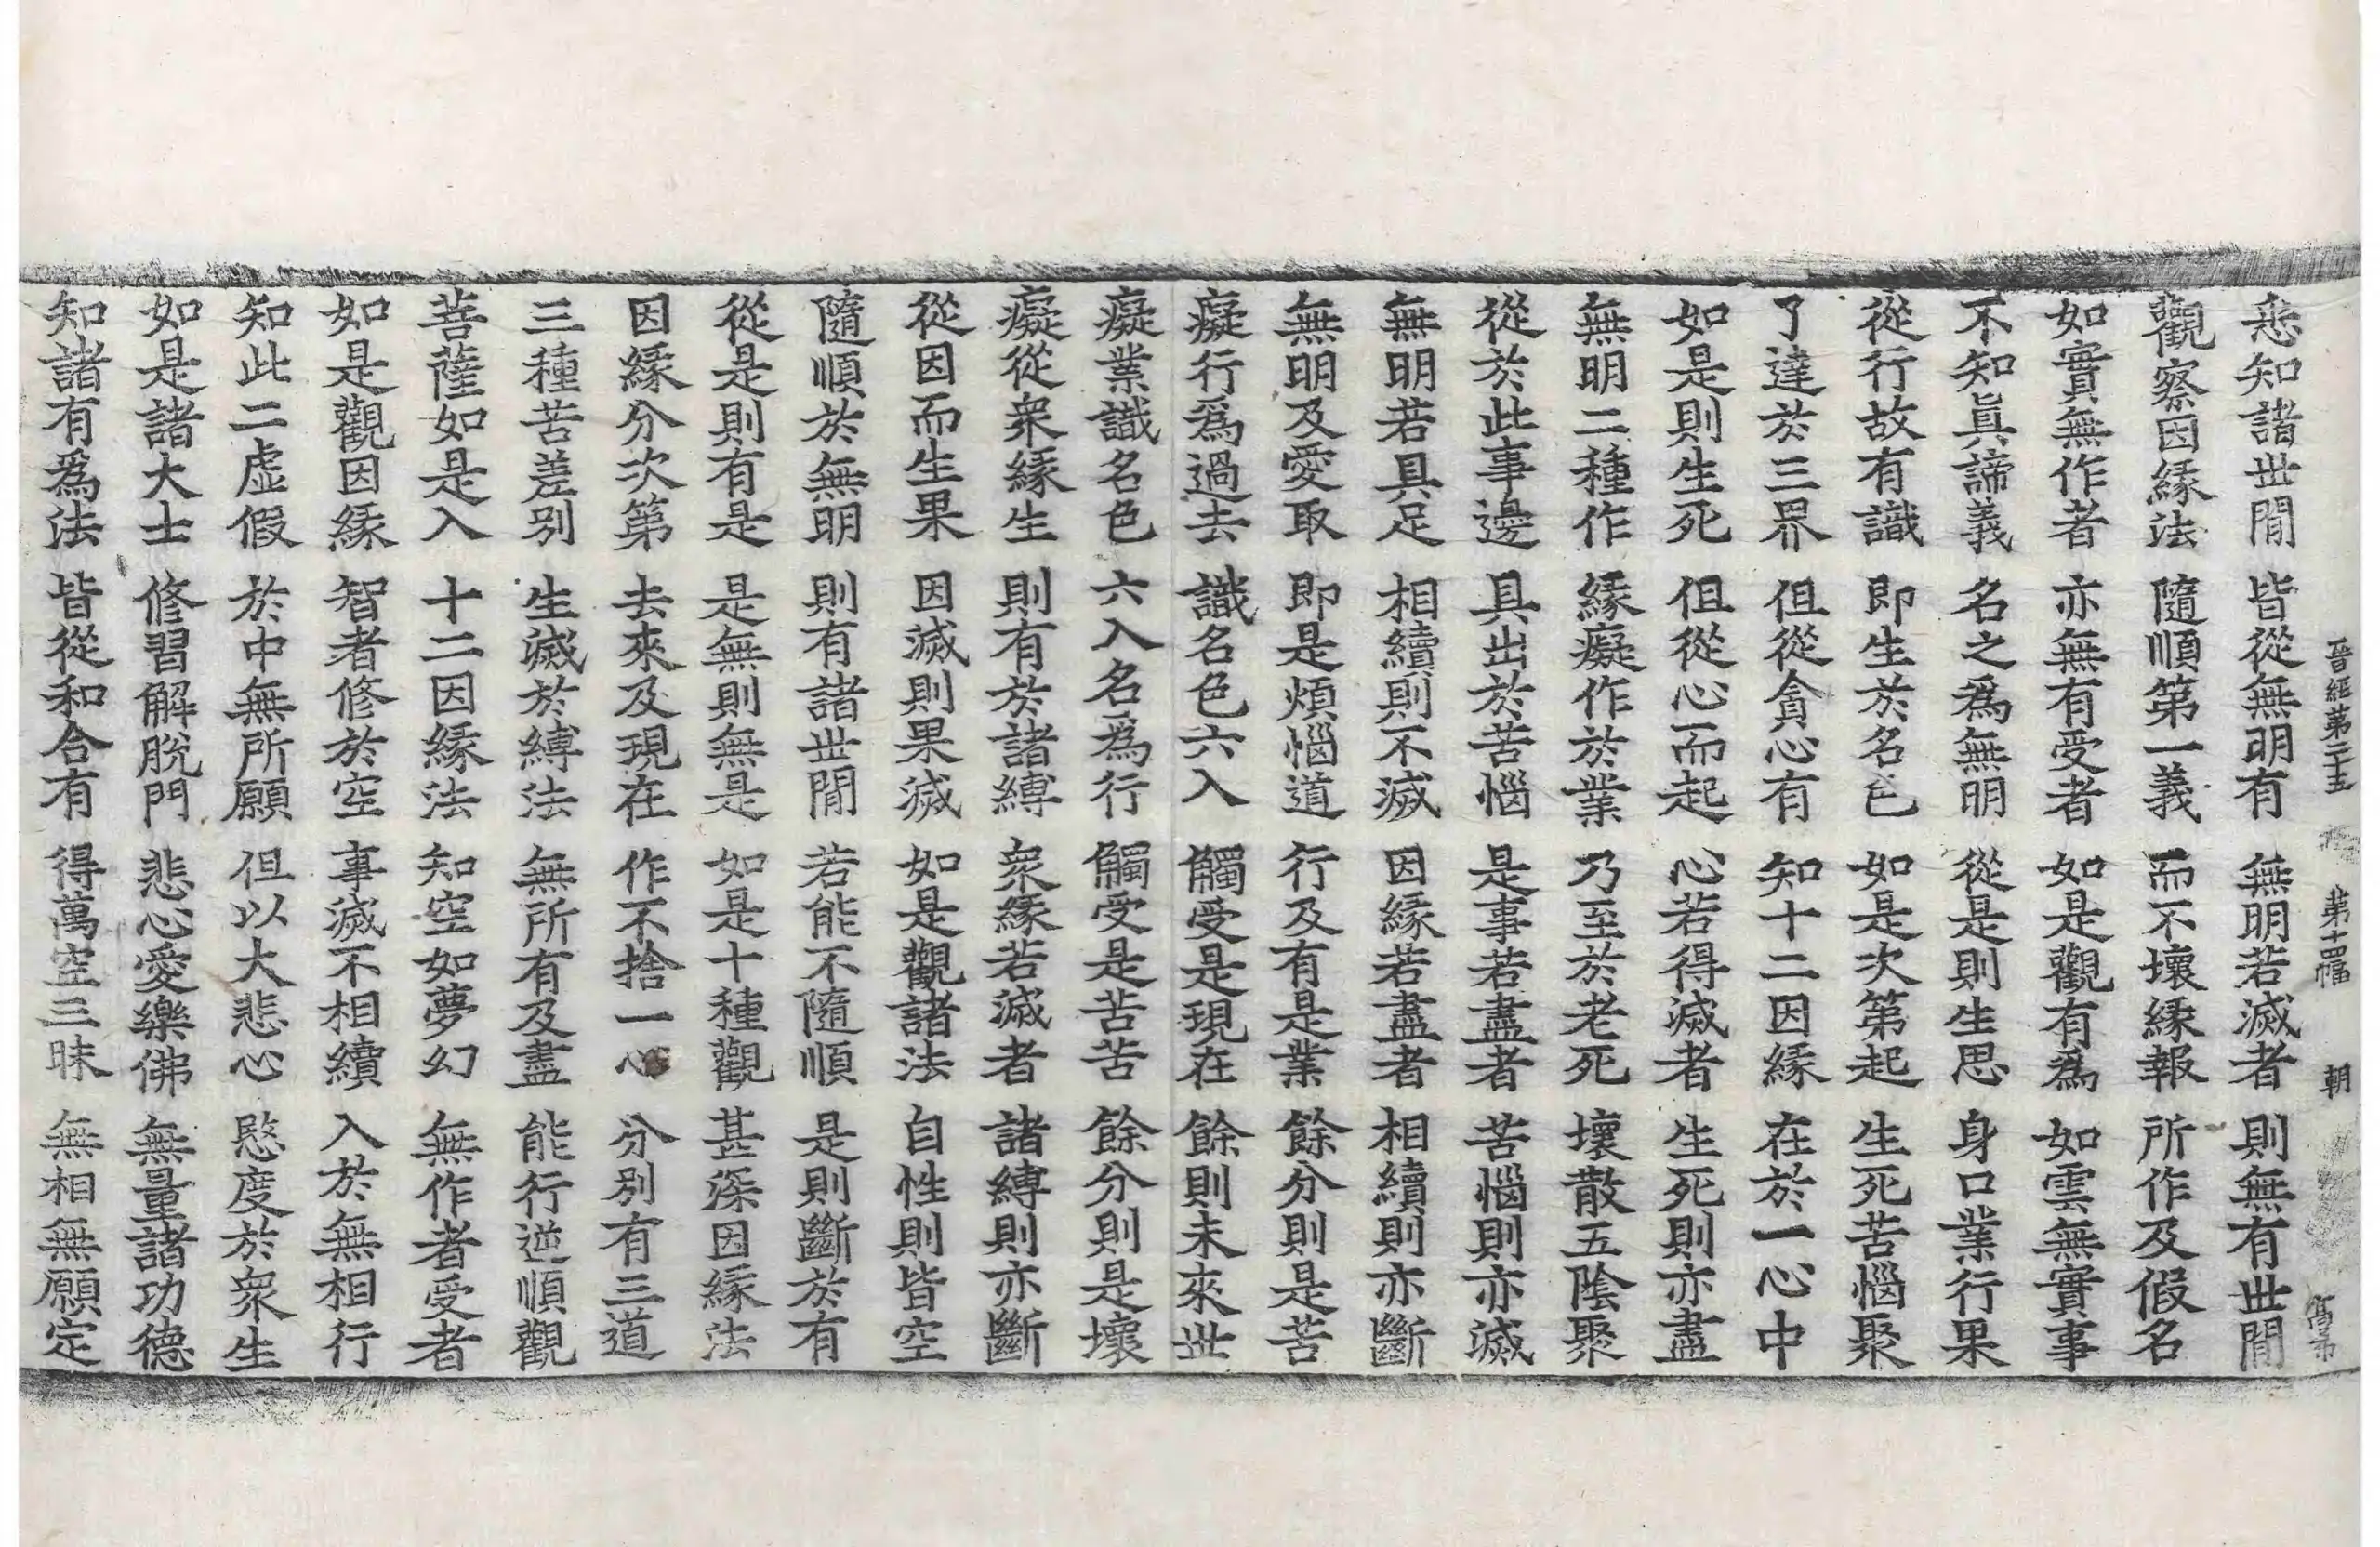 晉經第二十五 第十四幅 朝
悉知諸世間 皆從無明有 無明若滅者 則無有世間
觀察因緣法 隨順第一義 而不壞緣報 所作及假名
如實無作者 亦無有受者 如是觀有爲 如雲無實事
不知眞諦義 名之爲無明 從是則生思 身口業行果
從行故有識 即生於名色 如是次第起 生死苦惱聚
了達於三界 但從貪心有 知十二因緣 在於一心中
如是則生死 但從心而起 心若得滅者 生死則亦盡
無明二種作 緣癡作於業 乃至於老死 壞散五陰聚
從於此事邊 具出於苦惱 是事若盡者 苦惱則亦滅
無明若具足 相續則不滅 因緣若盡者 相續則亦斷
無明及愛取 即是煩惱道 行及有是業 餘分則是苦
癡行爲過去 識名色六入 觸受是現在 餘則未來世
癡業識名色 六入名爲行 觸受是苦苦 餘分則是壞
癡從衆緣生 則有於諸縛 衆緣若滅者 諸縛則亦斷
從因而生果 因滅則果滅 如是觀諸法 自性則皆空
隨順於無明 則有諸世間 若能不隨順 是則斷於有
從是則有是 是無則無是 如是十種觀 甚深因緣法
因緣分次第 去來及現在 作不捨一心 分別有三道
三種苦差別 生滅於縛法 無所有及盡 能行逆順觀
菩薩如是入 十二因緣法 知空如夢幻 無作者受者
如是觀因緣 智者修於空 事滅不相續 入於無相行
知此二虛假 於中無所願 但以大悲心 愍度於衆生
如是諸大士 修習解脫門 悲心愛樂佛 無量諸功德
知諸有爲法 皆從和合有 得萬空三昧 無相無願定